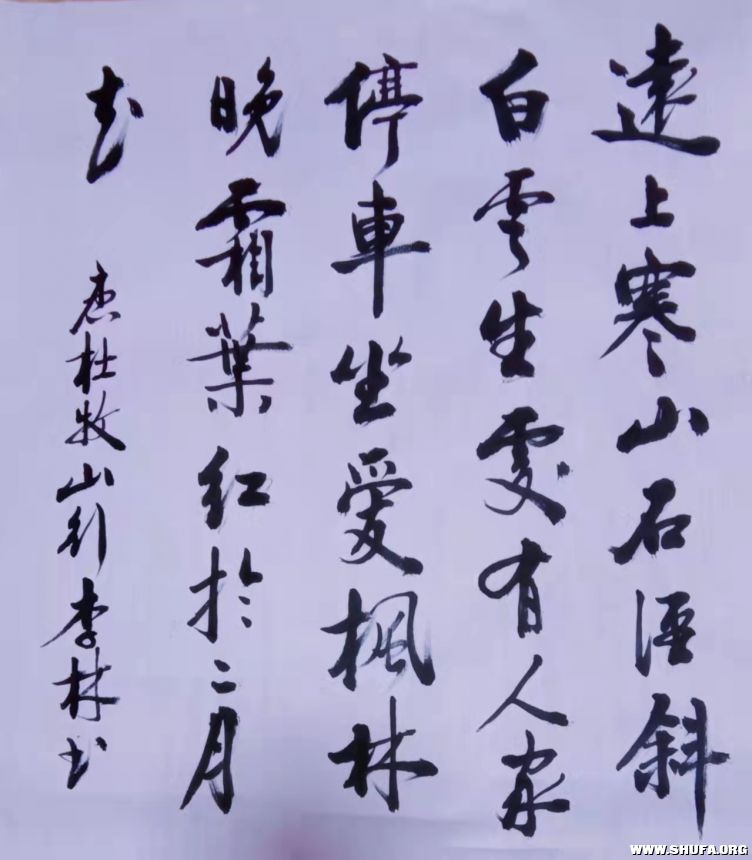 遠上寒山石徑斜
白雲生處有人家
停車坐愛楓林
晚霜葉紅於二月
花
杜牧山行李林书
WWW.SHUFA.ORG